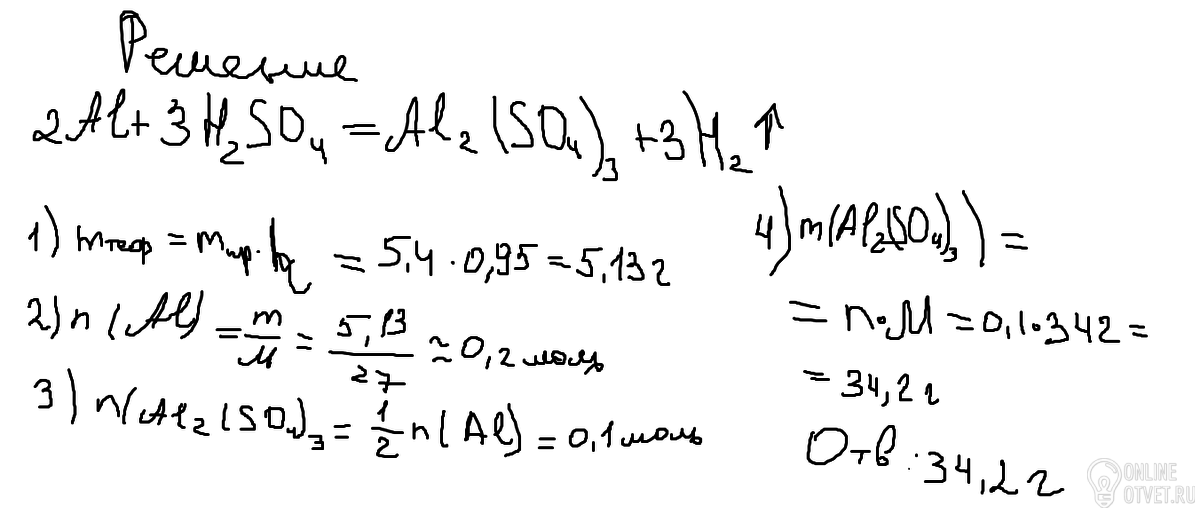 Решение
2Al + 3H₂SO₄ = Al₂(SO₄)₃ + 3H₂↑
1) mтеор = mпр. = 5,4 · 0,95 = 5,13 г
2) n(Al) = m/M = 5,13/27 ≈ 0,2 моль
3) n(Al₂(SO₄)₃ = 1/2 n(Al) = 0,1 моль
4) m(Al₂(SO₄)₃) =
= n·M = 0,1·342 =
= 34,2 г
Отв: 34,2 г
ONLINE
OTVET.RU